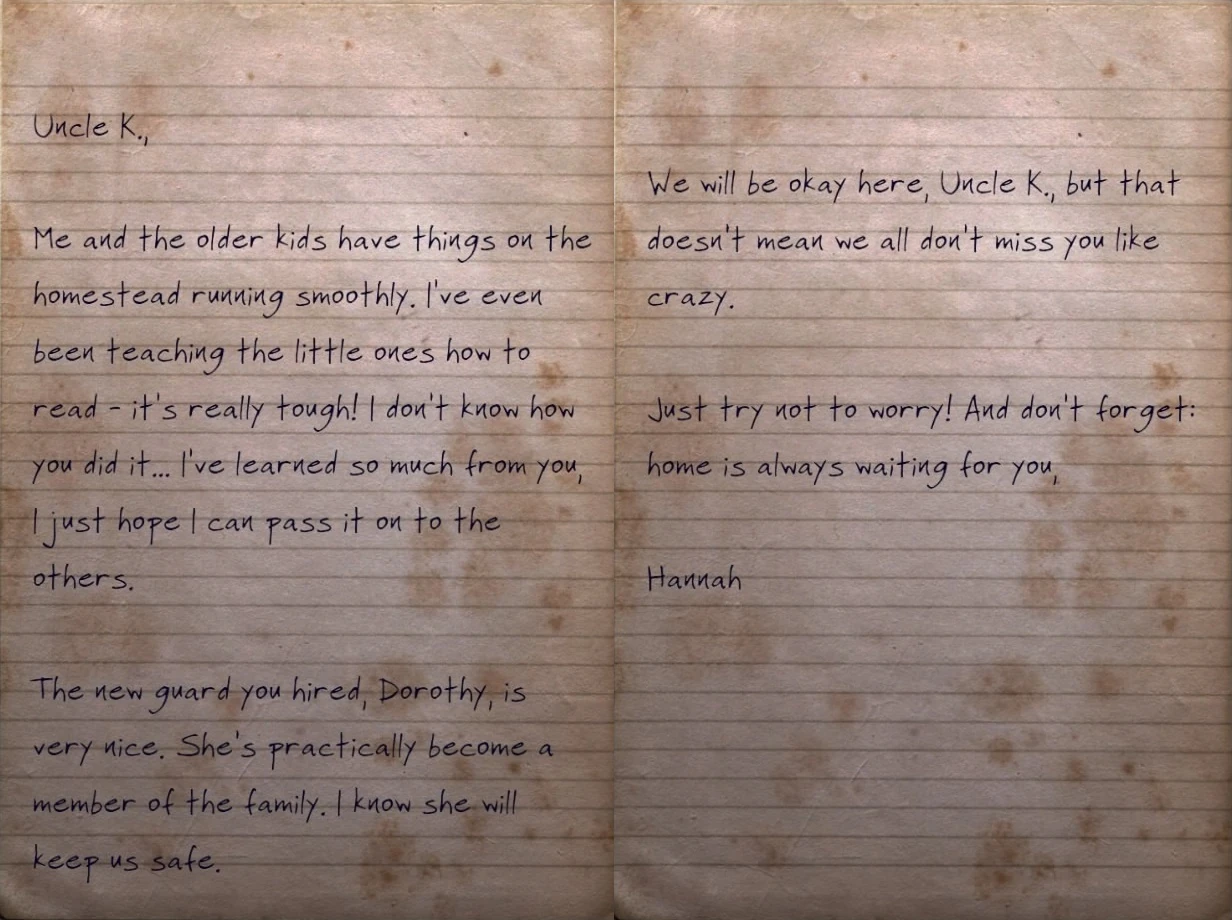 Uncle K.,
Me and the older kids have things on the
homestead running smoothly. I've even
been teaching the little ones how to
read - it's really tough! I don't know how
you did it... I've learned so much from you,
I just hope I can pass it on to the
others.
The new guard you hired, Dorothy, is
very nice. She's practically become a
member of the family. I know she will
keep us safe.
We will be okay here, Uncle K., but that
doesn't mean we all don't miss you like
crazy.
Just try not to worry! And don't forget:
home is always waiting for you,
Hannah